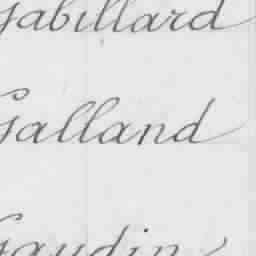 Gabillard
Galland
Gaudin